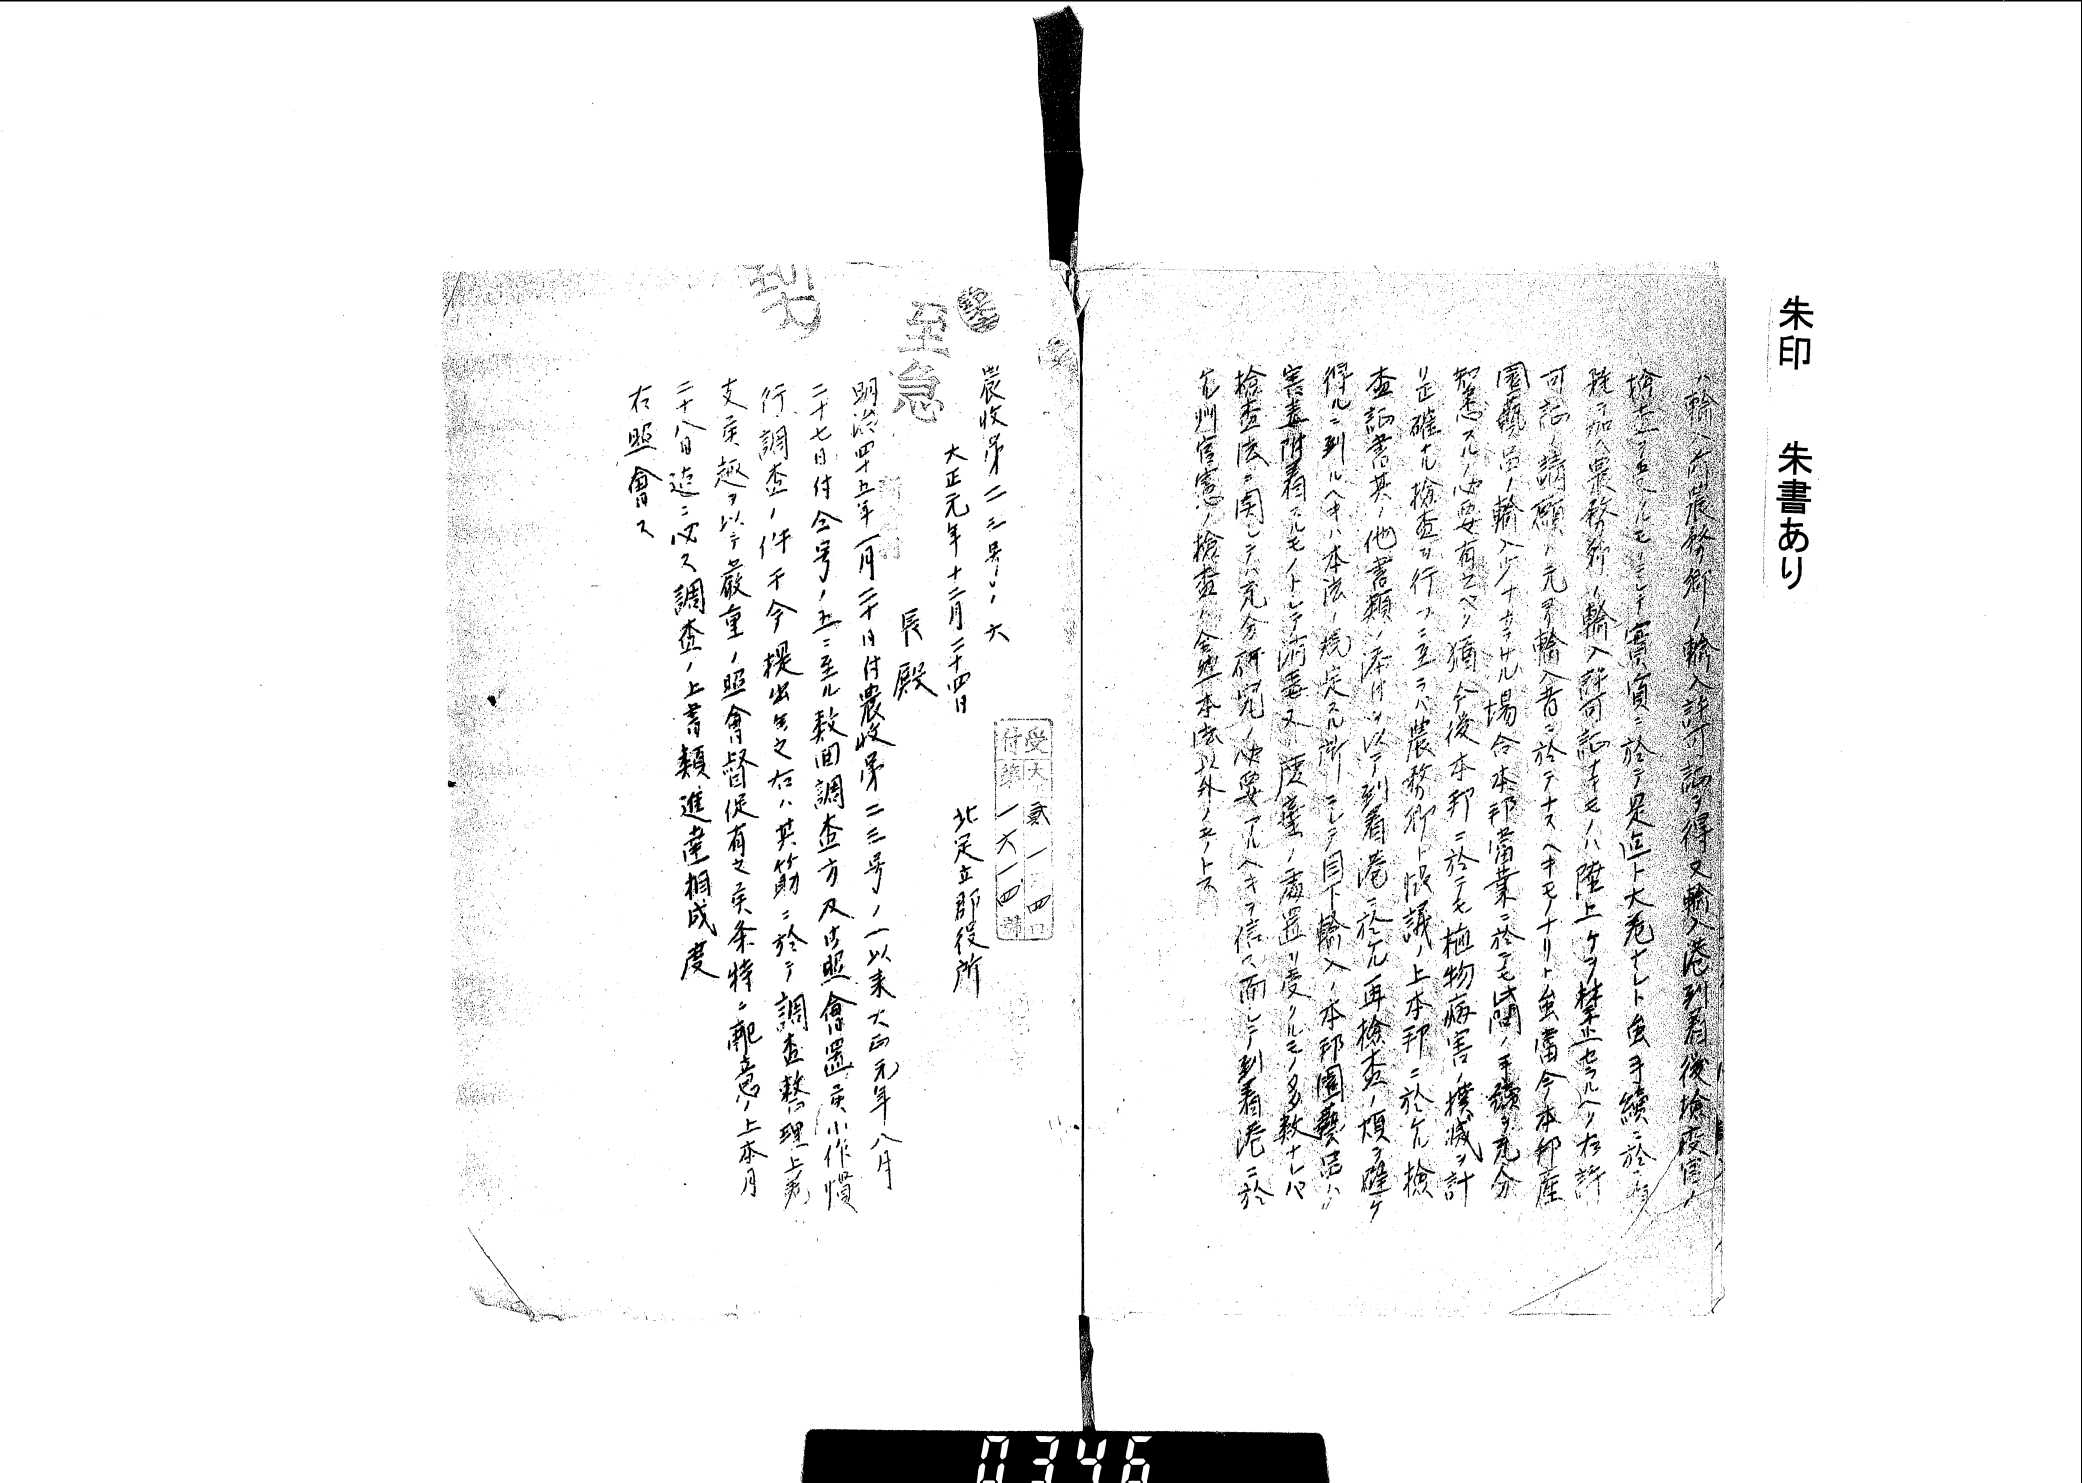 朱印　朱書あり
ハ輸入前農務卿ノ輸入許可証ヲ得又輸入港到着後検疫官ノ
検査ヲ受クルモノニシテ実質ニ於テ是迄ト大差ナシト虽手続ニ於テ
雑ヲ加ヘ農務卿ノ輸入許可証ナキモノハ陸上ケヲ禁止セラルヘク右許
可証ノ請願ハ元ヨリ輸入者ニ於テナスヘキモノナリト虽当今本邦産
園藝品ノ輸入少ナカラサル場合本邦当業ニ於テモ此間ノ手続ヲ充分
知悉スルノ必要有之ヘク猶今後本邦ニ於テモ植物病害ノ撲滅ヲ計
リ正確ナル検査ヲ行フニ至ラハ農務卿ト協議ノ上本邦ニ於ケル検
査証書其ノ他書類ノ添付ヲ以テ到着港ニ於ケル再検査ノ煩ヲ避ケ
得ルニ到ルヘキハ本法ノ規定スル所ニシテ目下輸入ノ本邦園藝品ハ
害虫附着スルモノトシテ消毒又ハ廃棄ノ処置ヲ受クルモノ多数ナレハ
検査法ニ関シテハ充分研究ノ必要アルヘキヲ信ス而シテ到着港ニ於
ケル州官憲ノ検査ハ全然本法以外ノモノトス
至急
受大貳一四口
付第一六一四號
農收第二三号ノ六
大正元年十二月二十四日
北足立郡役所
長殿
明治四十五年一月二十日付農收第二三号ノ一以来大正元年八月
二十七日付仝号ノ五ニ至ル数回調査方及御照會置候小作慣
行調査ノ件于今提出無之右ハ其筋ニ於テ調査整理上差
支候趣ヲ以テ厳重ノ照會督促有之候条特ニ配意ノ上本月
二十八日迄ニ必ス調査ノ上書類進達相成度
右照會ス
0346